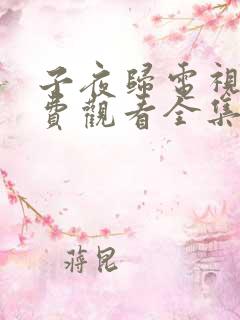 子夜歸電視
費觀看全集
蔣昆